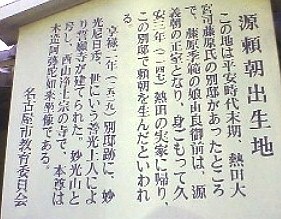 源頼朝出生地
この地は平安時代末期、熱田大
宮司藤原氏の別邸があったところ
で、藤原季範の娘由良御前は、源
義朝の正室となり、身ごもって久
安三年(一一四七)熱田の実家に帰り、
この別邸で頼朝を生んだといわれ
る。
享禄二年(一五二九)別邸跡に、妙
光尼日秀、世にいう善光上人によ
り誓願寺が建てられた。妙光山と
号し、西山浄土宗の寺で、本尊は
木造阿弥陀如来坐像である。
名古屋市教育委員会